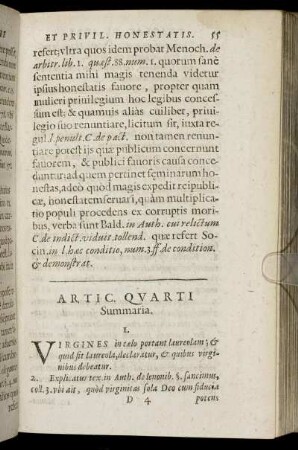 ET PRIVIL. HONESTATIS. 55
refert; vltra quos idem probat Menoch. de
arbitr. lib. 1. quæst. 88. num. 1. quorum sanè
sententia mihi magis tenenda videtur
ipsius honestatis fauore, propter quam
mulieri priuilegium hoc legibus conces-
sum est; & quamuis aliàs cuiliber, priui-
legio suo renuntiare, licitum sit, iuxta re-
gul. l. penult. C. de pact. non tamen renun-
tiare potest ijs quæ publicum concernunt
fauorem, & publici fauoris causa conce-
duntur: ad quem pertinet feminarum hone-
stas, adeò quòd magis expedit reipubli-
cæ, honestatem seruari, quàm multiplica-
tio populi procedens ex corruptis mori-
bus, verba sunt Bald. in Auth. cui relictum
C. de indict. viduit. tollend. quæ refert So-
cin. in l. hæc conditio, num. 3. ff. de condition.
& demonstrat.
ARTIC. QVARTI
Summaria.
1.
VIRGINES in cælo portant laureolam; &
quid sit laureola, declaratur, & quibus virgi-
nibus debeatur.
2. Explicatur tex. in Auth. de lenonib. §. sancimus,
coll. 3. vbi ait, quòd virginitas sola Deo cum fiducia
D 4 potens